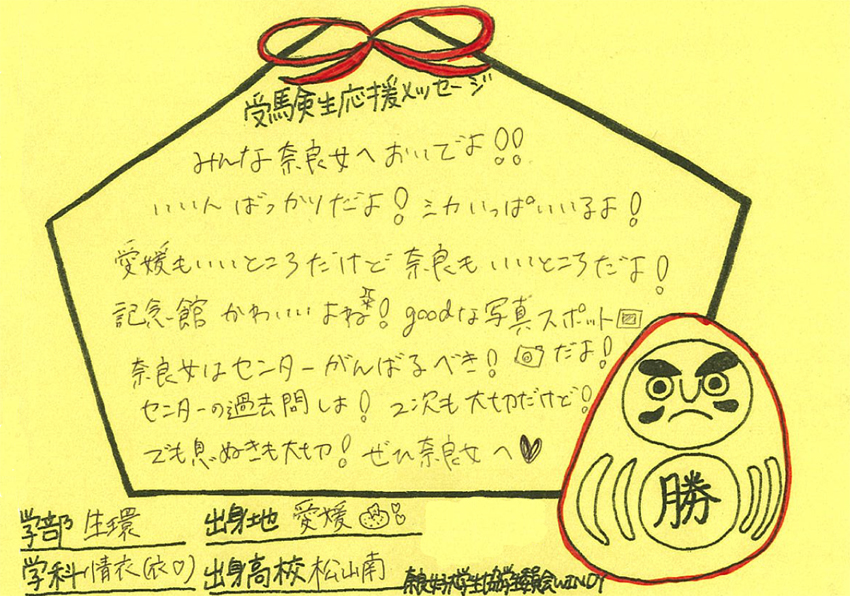 受験生応援メッセージ
みんな奈良女へおいでよ!!
いいんばっかりだよ!シカいっぱいいるよ!
愛媛もいいところだけど奈良もいいところだよ!
記念館かわいいよね!goodな写真スポット
だよ!
奈良女はセンターがんばるべき!
センターの過去問しよ!2次も大切だけど!
でも息ぬきも大切!ぜひ奈良女へ♥
勝
学部 生環 出身地 愛媛
学科 情衣(衣♡) 出身高校 松山南
奈良女子大学生協学生委員会WINDY